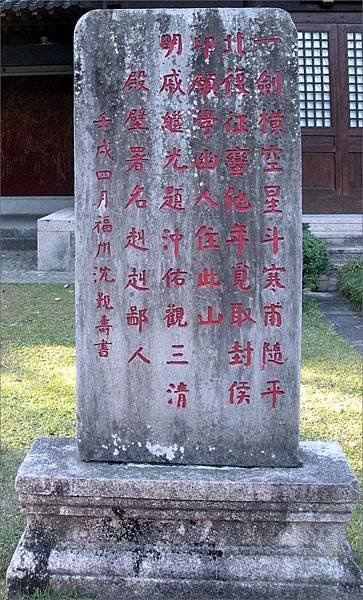 一劍橫空星斗寒甫隨平
北復征蠻他年覓取封侯
印願學幽人住此山
明戚繼光題沖佑觀三清
殿壁署名赳赳鄙人
壬戌四月福州沈覲壽書